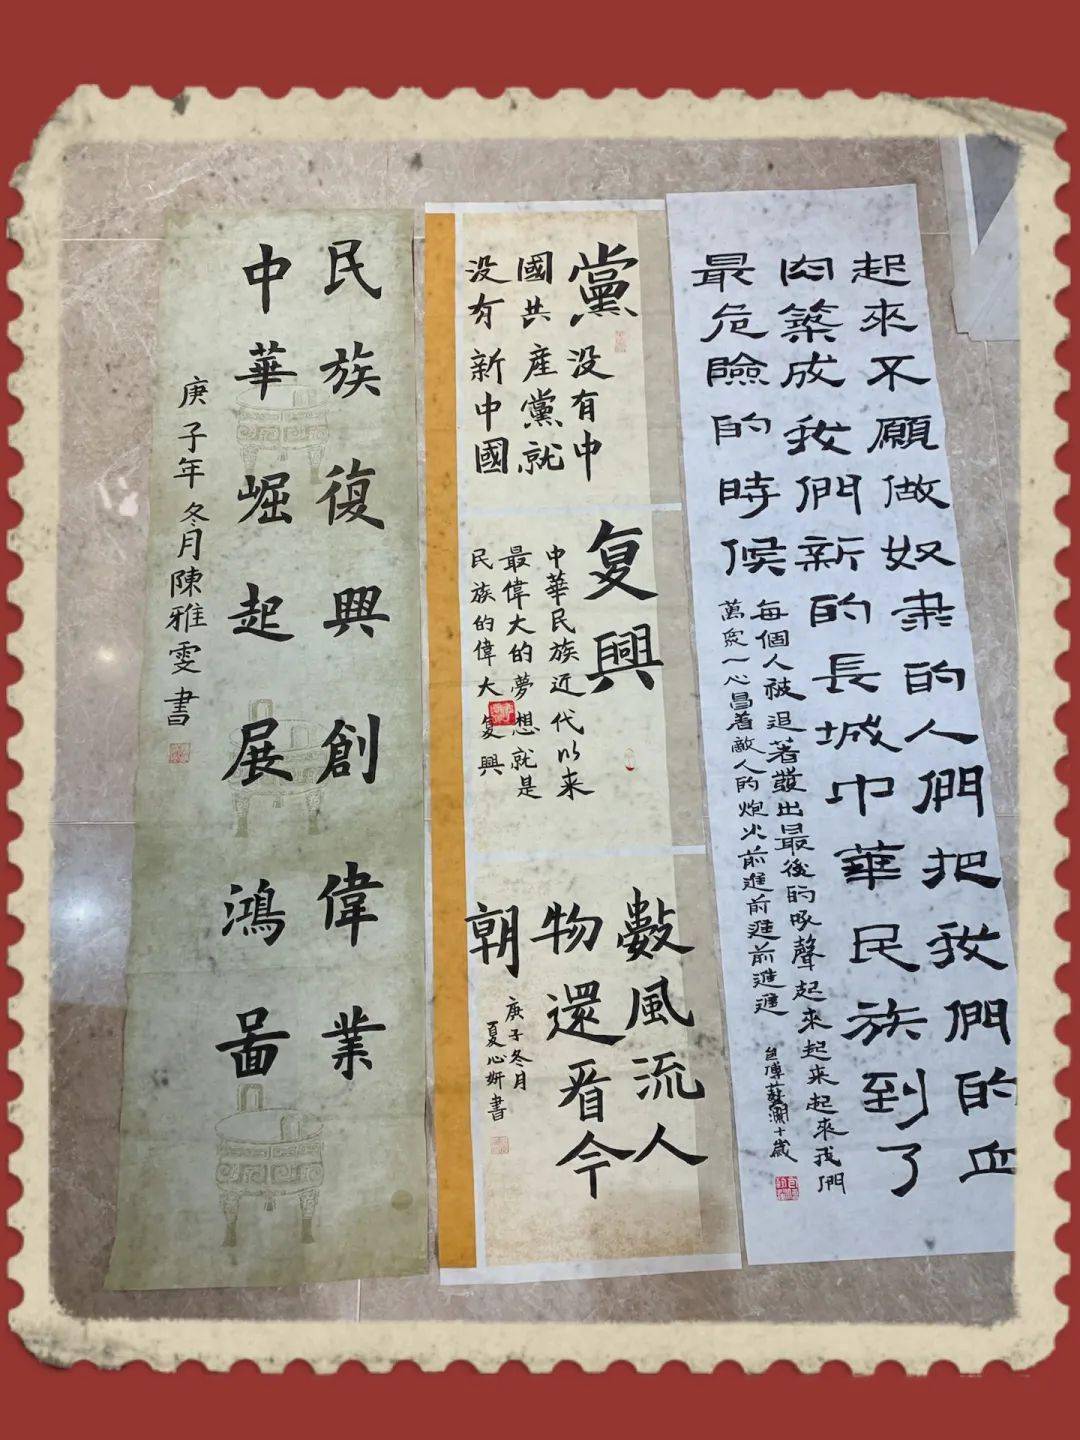 起來不願做奴隶的人們把我們的血
肉築成我們新的長城中華民族到了
最危險的時候
每個人被追著發出最後的吼聲起來起來起來我們
萬眾一心昌着敵人的炮火前進前進前進進
十歲
黨
没有中
國共產黨就
没有新中國
复興
中華民族近代以来
最偉大的夢想就是
民族的偉大复興
數風流人
物還看今
朝
庚子冬月
夏心妍書
民族復興創偉業
中華崛起展鴻啚
庚子年冬月陳雅雯書